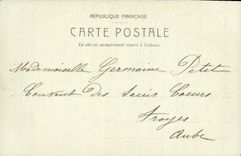 RÉPUBLIQUE FRANÇAISE
CARTE POSTALE
Ce côté est exclusivement réservé à l'adresse.
Mademoiselle Germaine Petit
Couvent des Sacrés Coeurs
Troyes
Aube